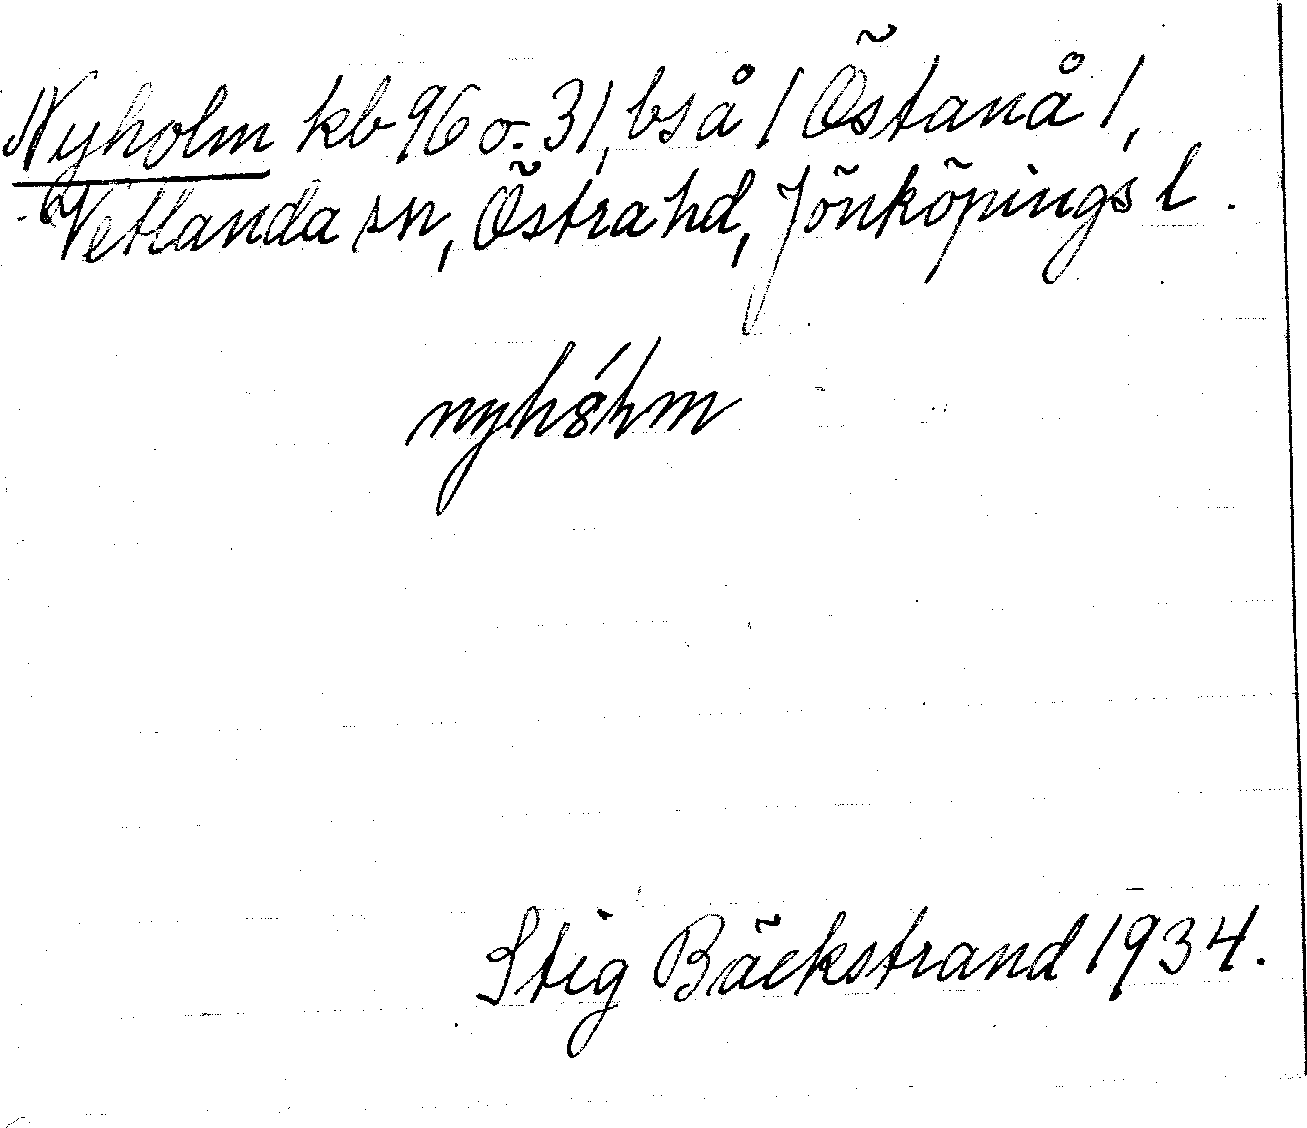 Nyholm kb 96 o. 31, bs å / Östanå 1,
Vetlanda sn, Östra hd, Jönköpings l.
Stig Bäckstrand 1934.